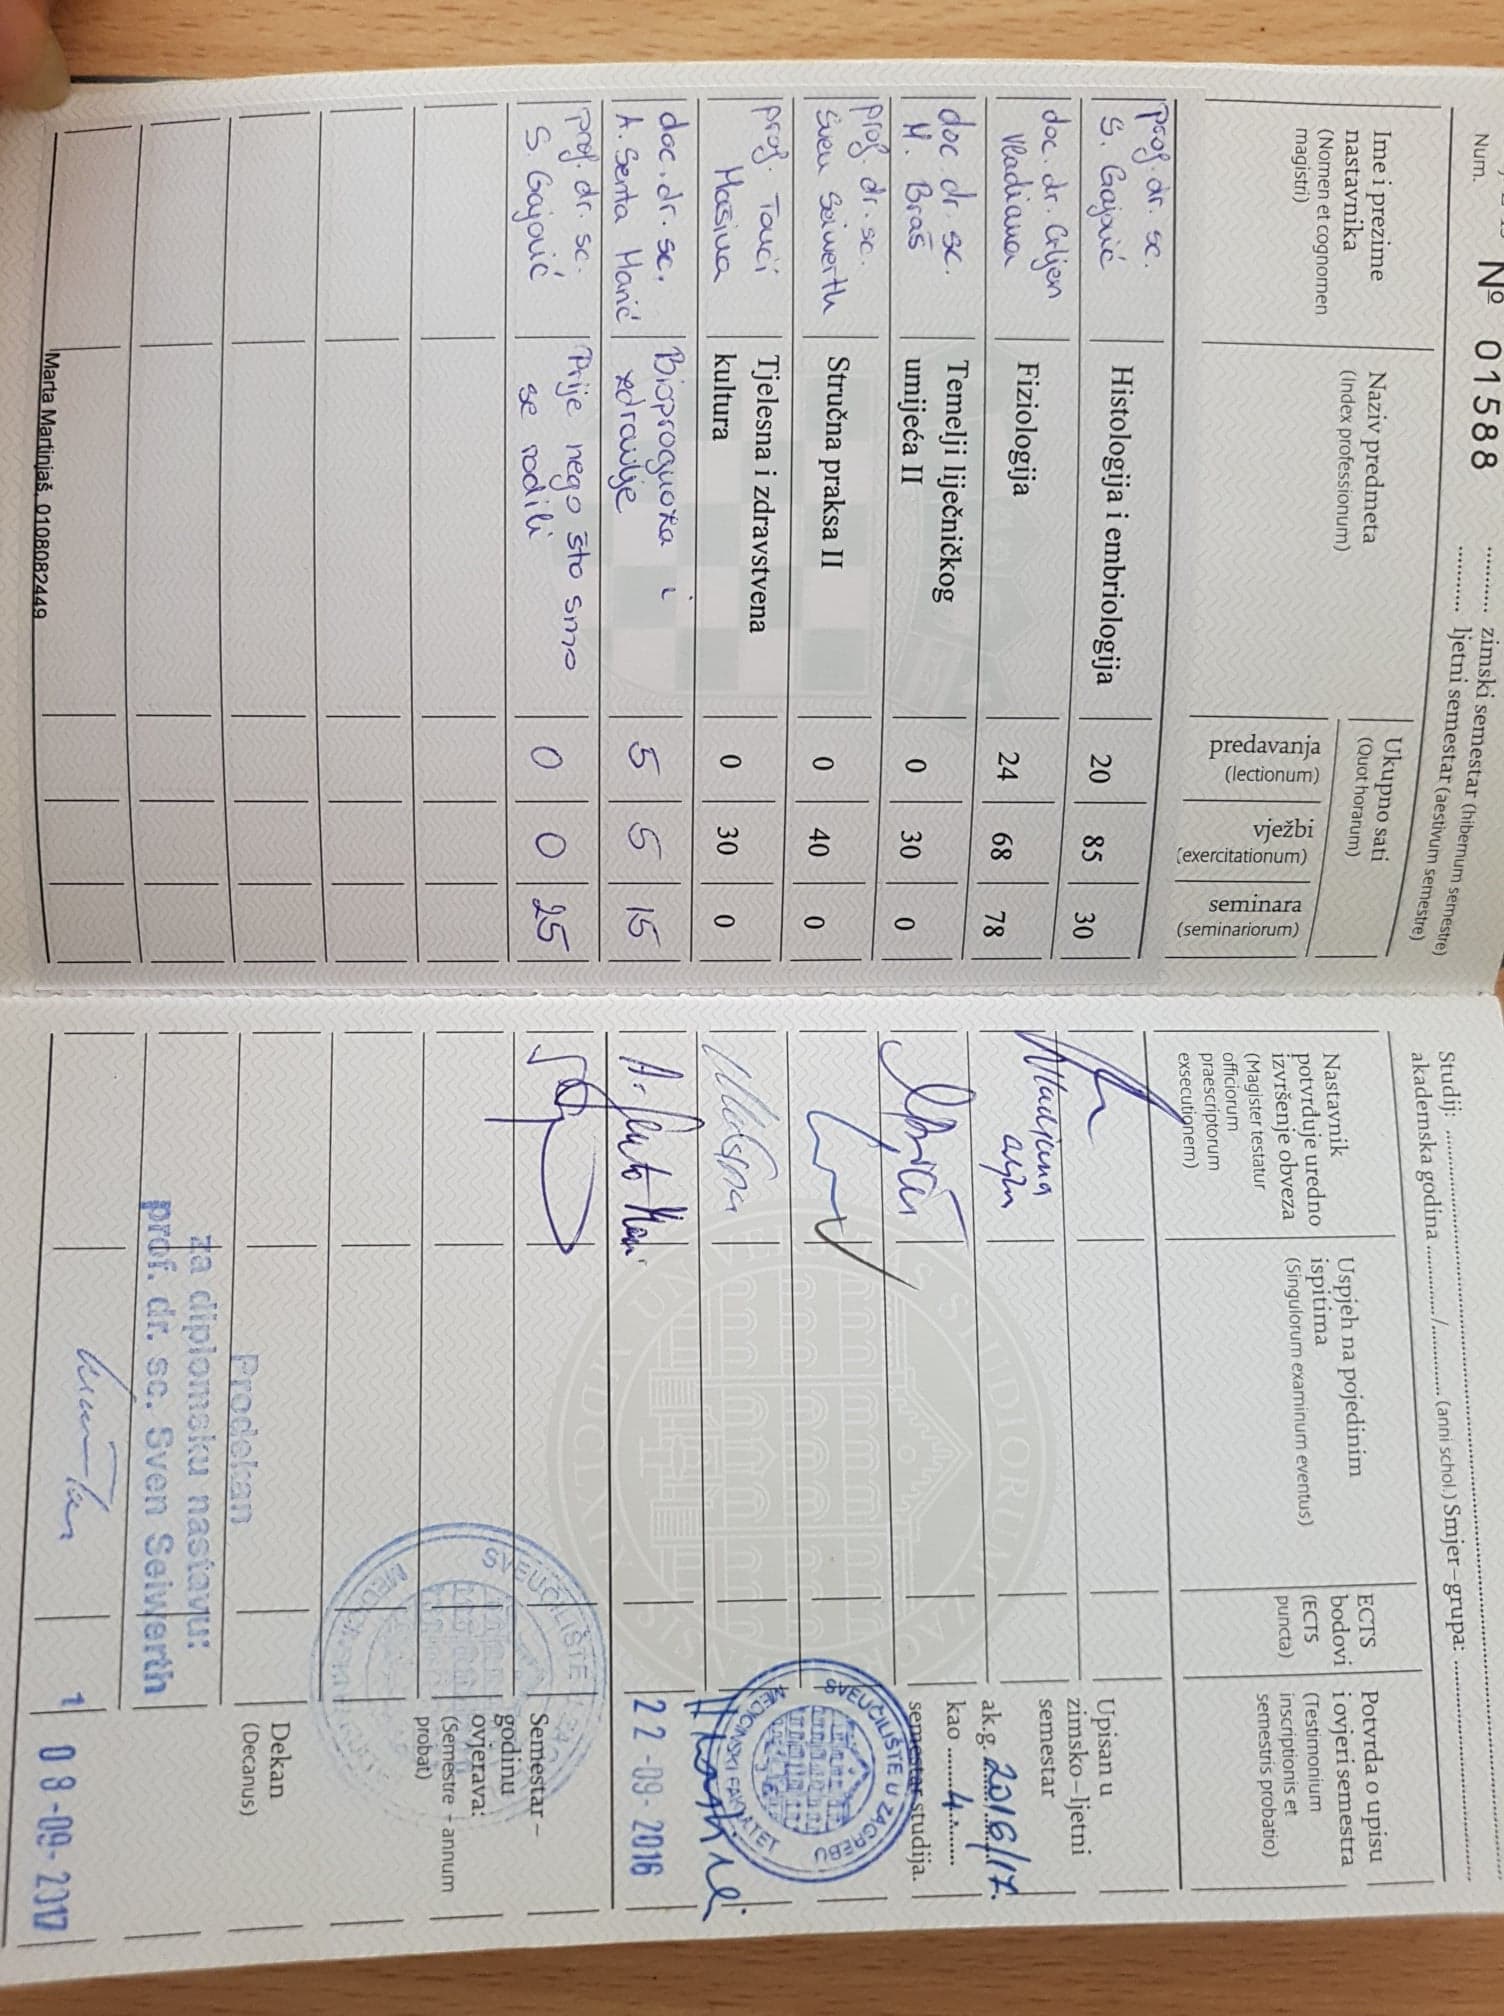 Num.
Nº 01588
zimski semestar (hibernum semestre)
ljetni semestar (aestivum semestre)
Ime i prezime
nastavnika
(Nomen et cognomen
magistri)
Naziv predmeta
(Index professionum)
Ukupno sati
(Quot horarum)
predavanja
(lectionum)
vježbi
(exercitationum)
seminara
(seminariorum)
prof. dr. sc.
S. Gajović
Histologija i embriologija
20 85 30
doc. dr. Crljen
Vladiana
Fiziologija
24 68 78
doc dr. sc.
M. Braš
Temelji liječničkog
umijeća II
0 30 0
prof. dr. sc.
Sven Seiwerth
Stručna praksa II
0 40 0
prof. Tonći
Mašina
Tjelesna i zdravstvena
kultura
0 30 0
doc. dr. sc.
A. Senta Marić
Bioprognoza i
zdravlje
5 5 15
prof. dr. sc.
S. Gajović
Prije nego što smo
se rodili
0 0 25
Marta Martinjaš, 0108082449
Studij:
akademska godina / (anni schol.) Smjer–grupa:
Nastavnik
potvrđuje uredno
izvršenje obveza
(Magister testatur
officiorum
praescriptorum
exsecutionem)
Uspjeh na pojedinim
ispitima
(Singulorum examinum eventus)
ECTS
bodovi
(ECTS
puncta)
Potvrda o upisu
i ovjeri semestra
(Testimonium
inscriptionis et
semestris probatio)
Vladiana
A. Senta Marić
Upisan u
zimsko–ljetni
semestar
ak.g. 2016/17.
kao 4.
semestar studija.
SVEUČILIŠTE U ZAGREBU
MEDICINSKI FAKULTET
22-09-2016
Semestar –
godinu
ovjerava:
(Semestre - annum
probat)
SVEUČILIŠTE U ZAGREBU
MEDICINSKI FAKULTET
Dekan
(Decanus)
Prodekan
za diplomsku nastavu:
prof. dr. sc. Sven Seiwerth
1
08-09-2017